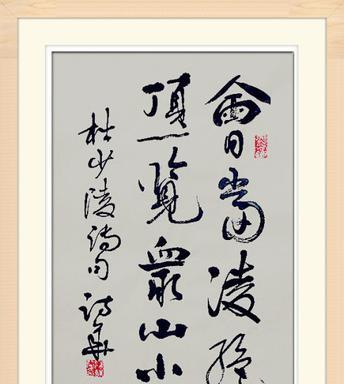 會當凌絕
頂一覽眾山小
杜少陵詩句